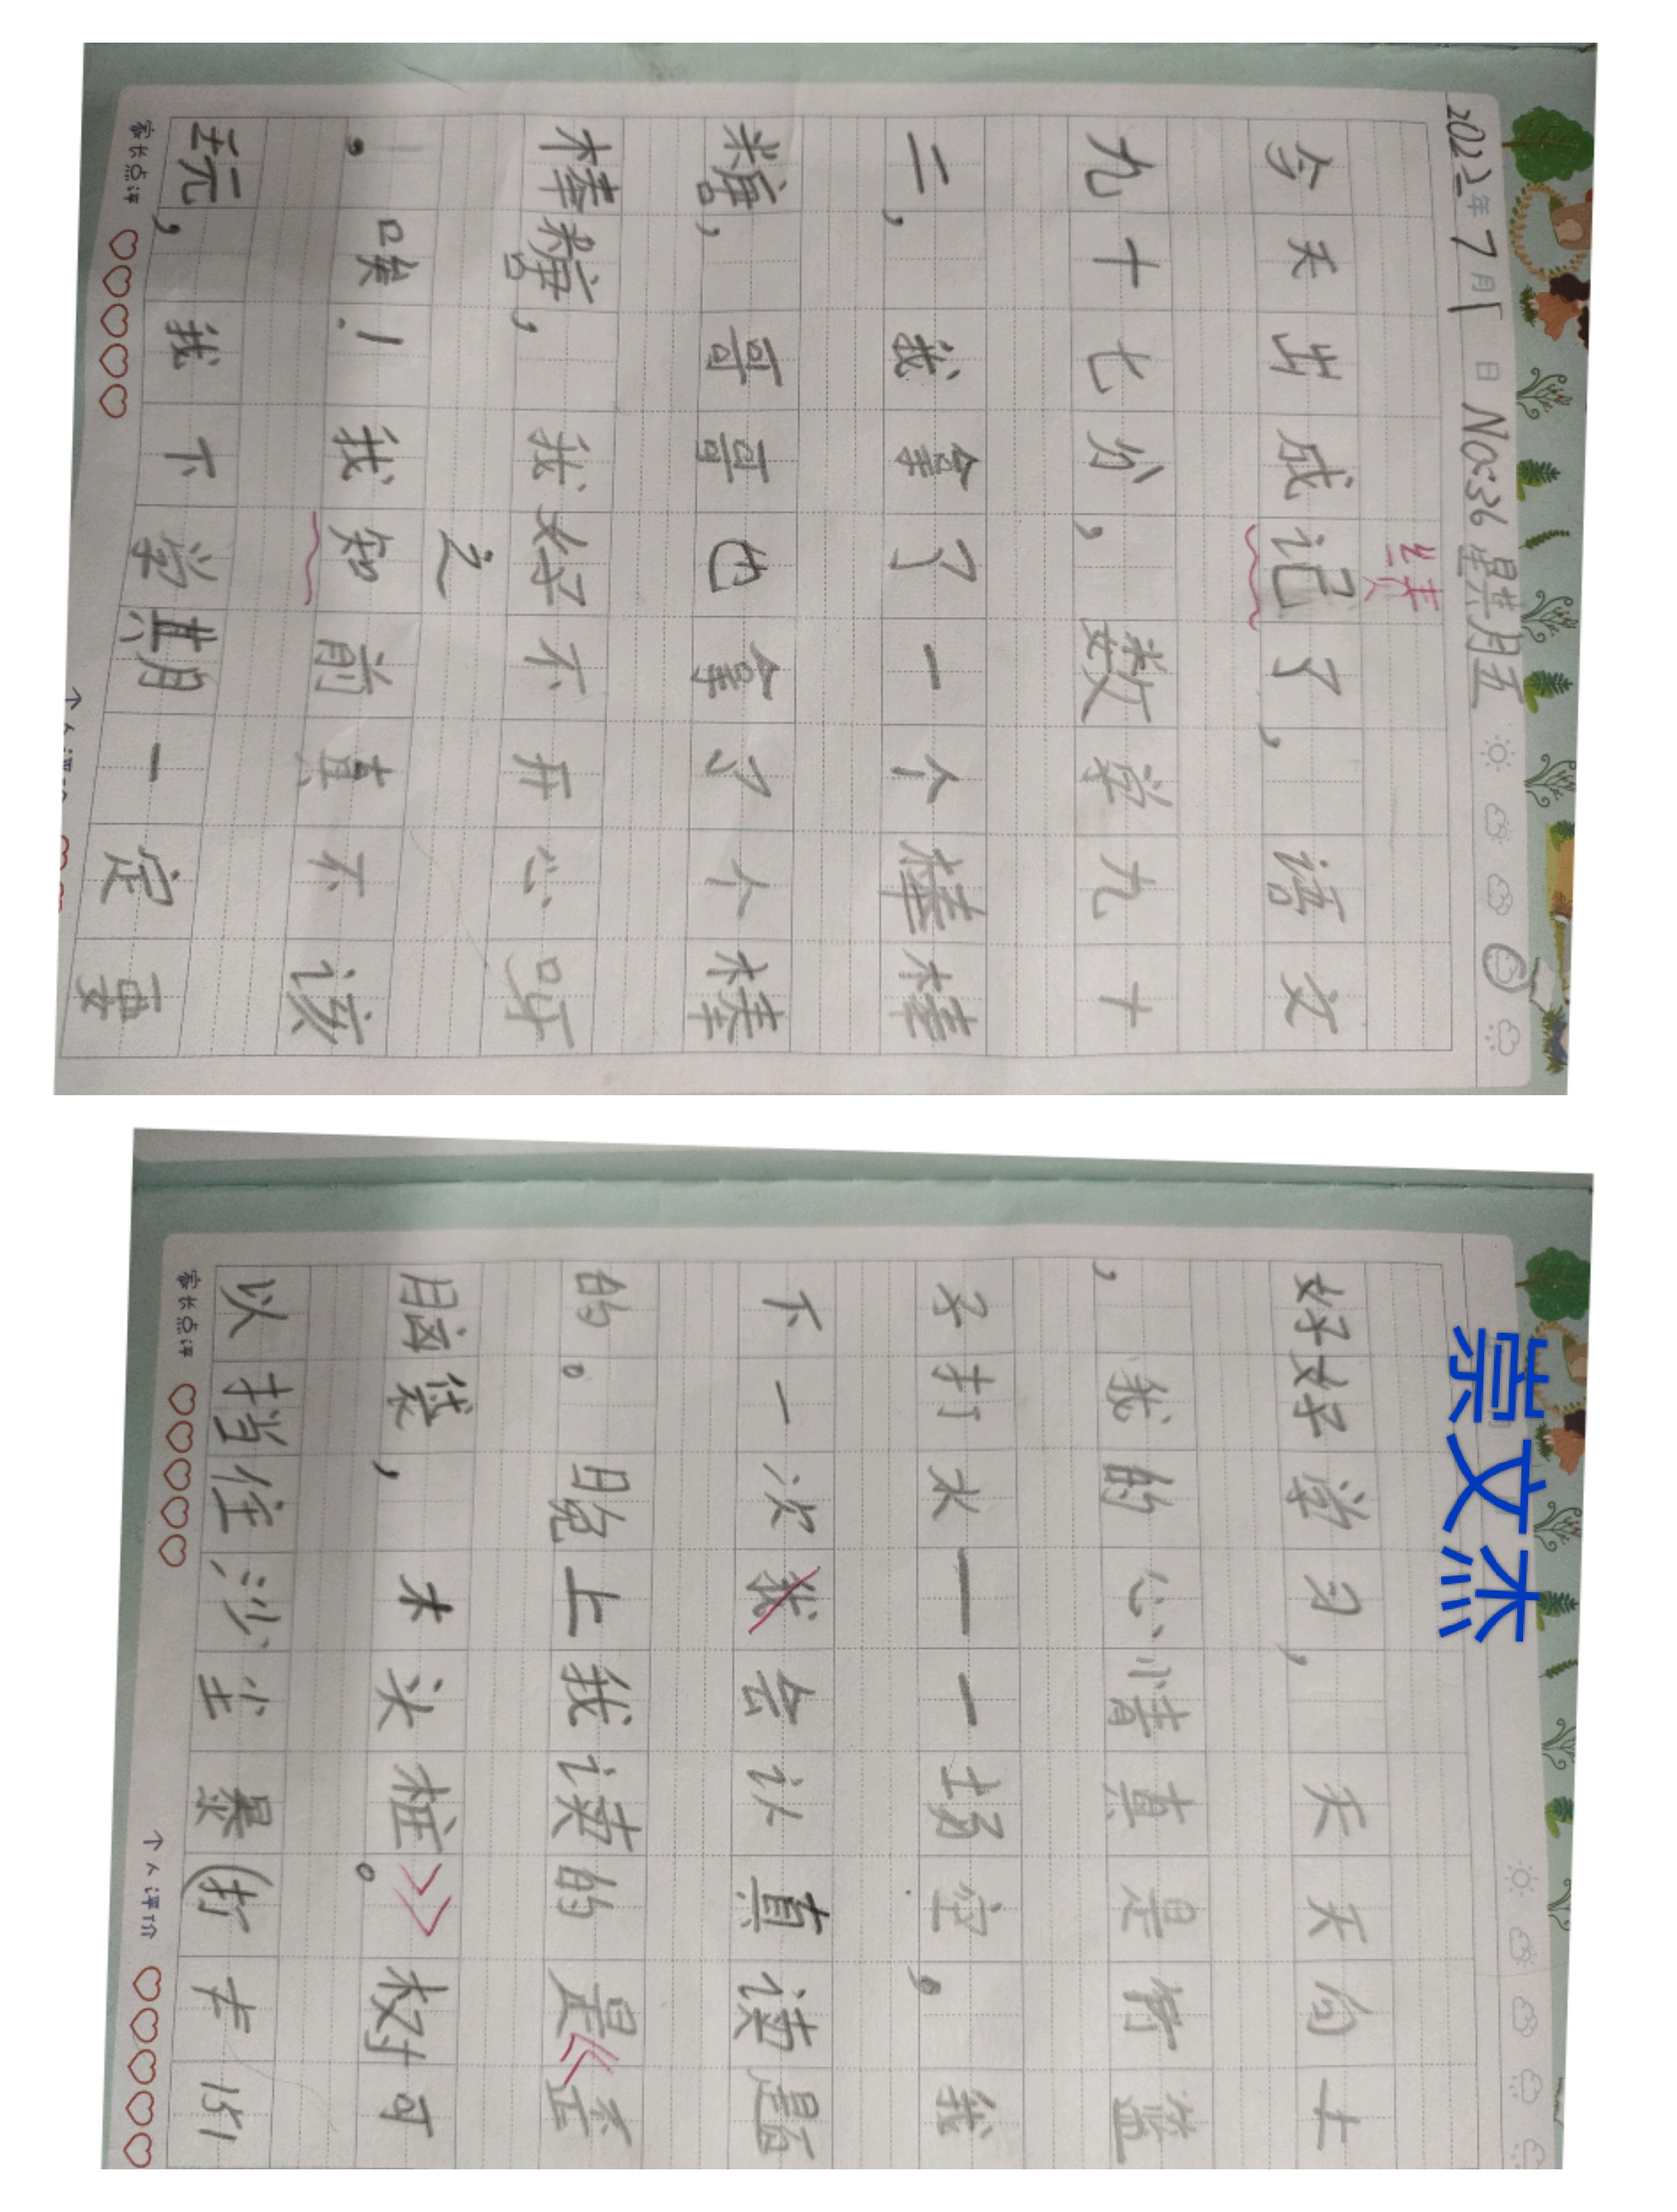 2022年7月1日 No:36 星期五
绩
今天出成记了,语文
九十七分,数学九十
二,我拿了一个棒棒
糖,哥哥也拿了个棒
棒糖,我好不开心呀
之
。唉!我知前真不该
玩,我下学期一定要
家长点评
个人评
崇文杰
好好学习,天天向上
,我的心情真是竹篮
子打水一一场空,我
下一次我会认真读题
的。晚上我读的是《歪
脑袋,木头桩》。树可
以挡住沙尘暴(151
家长点评
个人评价